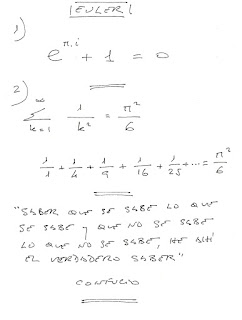 |EULER|
1)
e^{π.i} + 1 = 0
2)
∞
∑ 1/k² = π²/6
k=1
1/1 + 1/4 + 1/9 + 1/16 + 1/25 + ... = π²/6
"SABER QUE SE SABE LO QUE
SE SABE Y QUE NO SE SABE
LO QUE NO SE SABE, HE AHÍ
EL VERDADERO SABER"
CONFUCIO